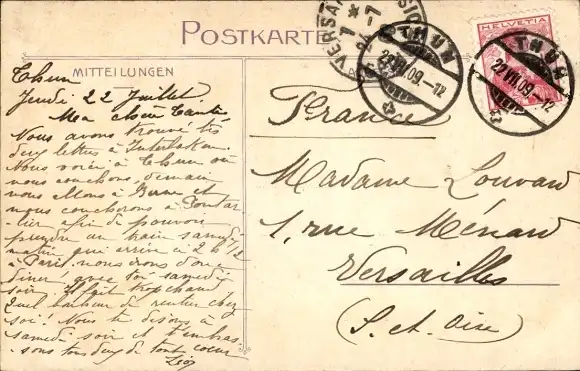 POSTKARTE
MITTEILUNGEN
Thun
Jeudi. 22 Juillet.
Ma chère Tante
Nous avons trouvé tes
deux lettres à Interlaken.
Nous voici à Thun où
nous couchons, demain
nous allons à Berne et
nous coucherons à Pontar-
lier afin de pouvoir
prendre un train samedi
matin qui arrive à 2 h 1/2
à Paris. nous irons donc
diner avec toi samedi
soir. Il fait trop chaud
Quel bonheur de rentrer chez
soi! Nous te disons à
samedi soir et t'embras-
sons tous deux de tout coeur
HELVETIA
THUN
22.VII.09.-12
THUN
22.VII.09.-12
VERSA
24-7
France
Madame Louvard
1, rue Ménard
Versailles
(S. et. Oise)